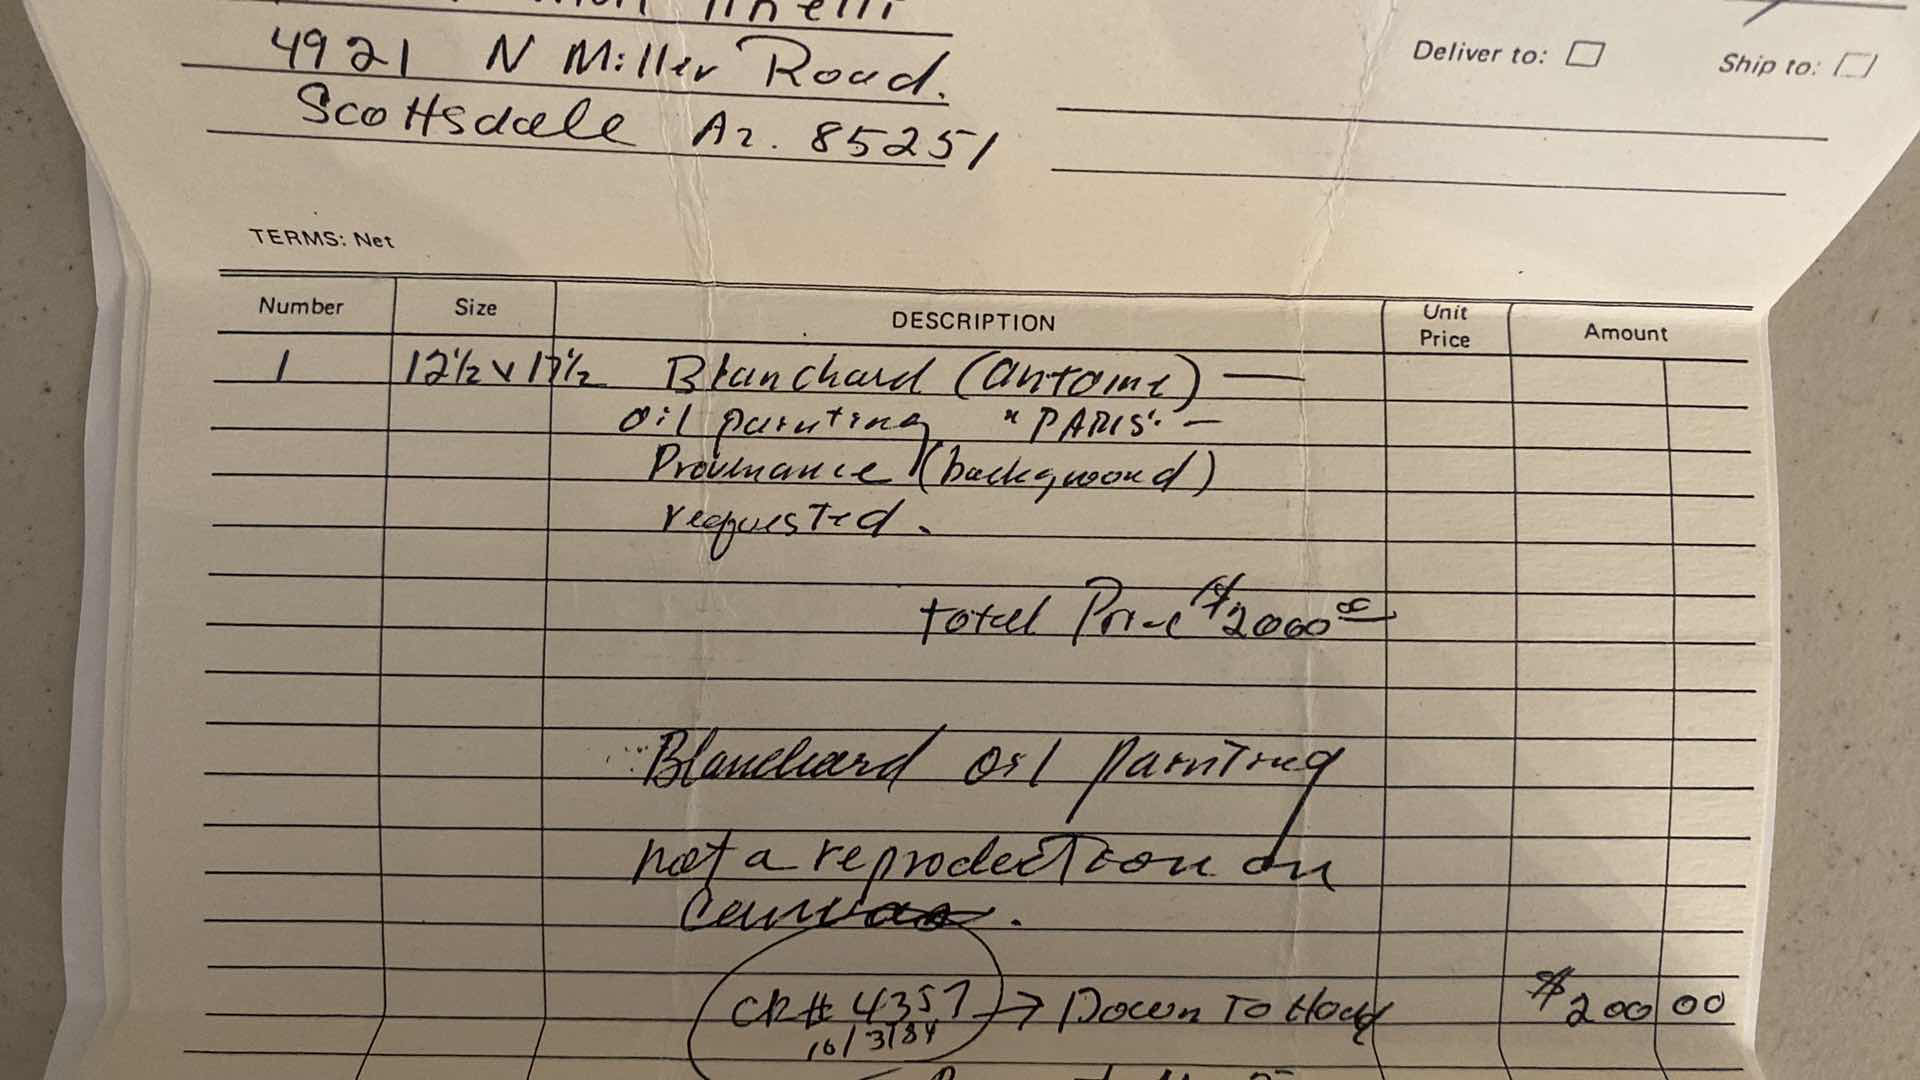 4921 N Miller Road.
Scottsdale Az. 85251
Deliver to:
Ship to:
TERMS: Net
Number Size DESCRIPTION Unit Price Amount
1 12½ x 17½ Blanchard (Antoine) —
oil painting "PARIS". —
Provenance (background)
requested.
total Price $2000 00
Blanchard oil painting
not a reprodection on
Canvas.
CK# 4357 → Down To Hold $200 00
10/3/84